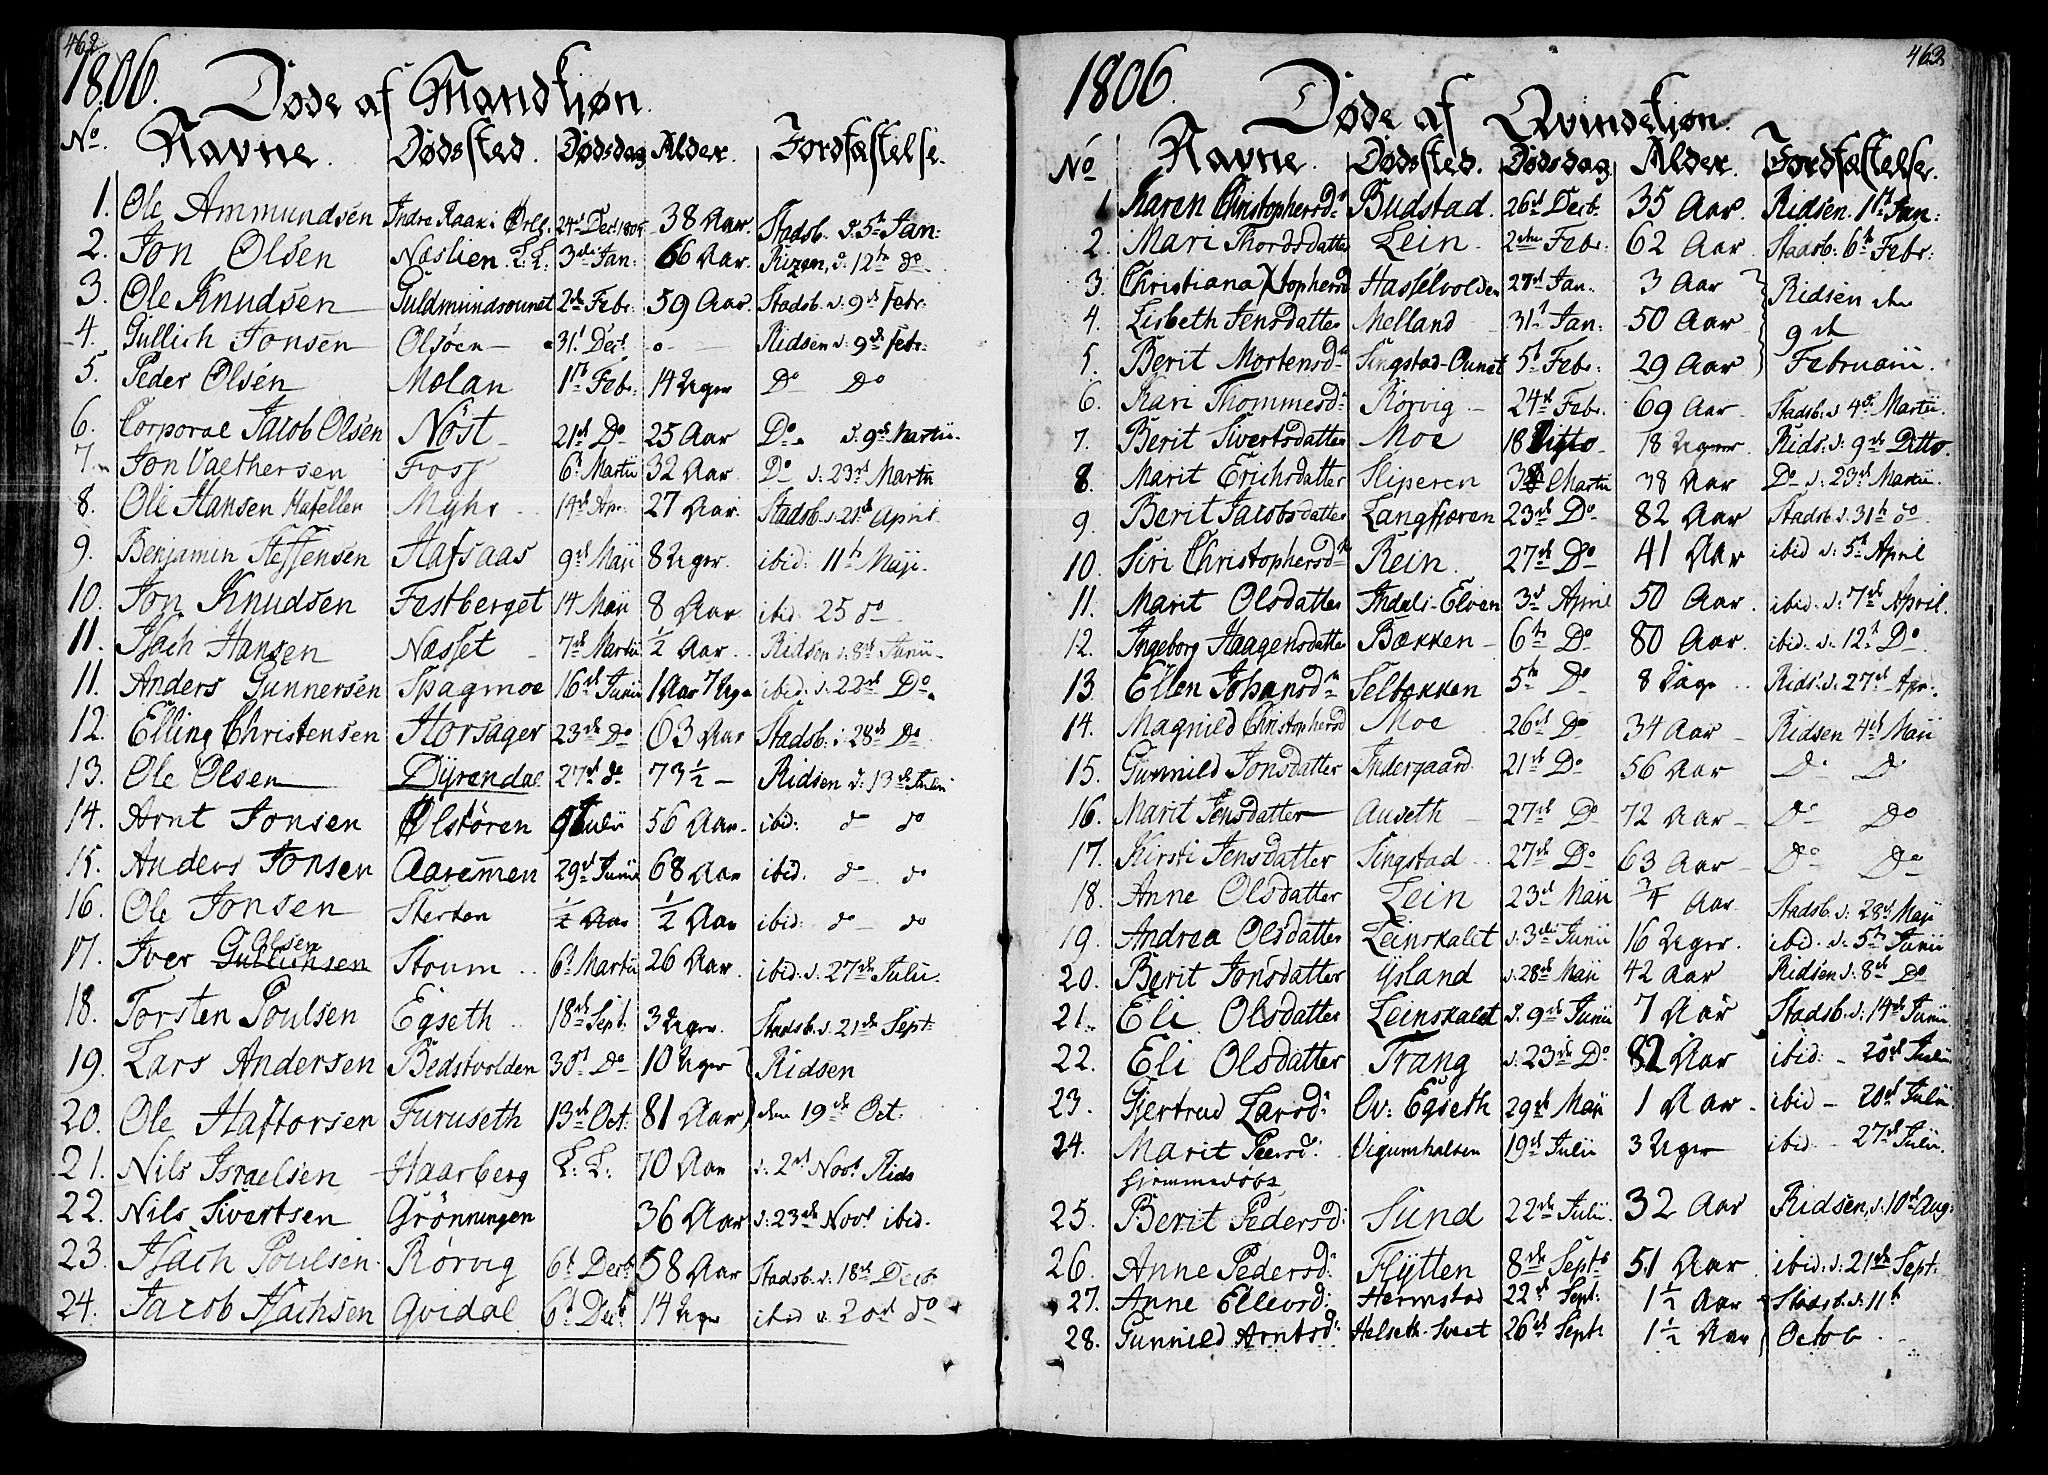 462.
1806.
Døde af Mandkiøn.
No. Navne. Dødssted. Dødsdag Alder. Jordfæstelse.
1. Ole Ammundsen Indre Raax i Ørl. 24d Dec: 1805 38 Aar. Stadsb. d. 5th Jan:
2. Jon Olsen Nøslien L. L. 3die Jan: 66 Aar. Rizen, d. 12te do
3. Ole Knudsen Guldmundsounet 2de Febr: 59 Aar. Stadsb. d. 9de Febr:
4. Gullich Jonsen Olsøen 31t Decb o - Ridsen d. 9de Febr:
5. Peder Olsen Molan 1ste Feb: 14 Uger Do Do
6. Corporal Jacob Olsen Nøst 21de Do 25 Aar Do d. 9de Martii.
7. Jon Valthersen Foss 6t Martii 32 Aar Do d. 23de Martii
8. Ole Hansen Myhr 14de Apr. 27 Aar. Stadsb. d. 21de April.
9. Benjamin Steffensen Hafsaas 9de Maji 8 Uger. ibid: 11te Maji.
10. Jon Knudsen Festberget 14 Maji 8 Aar ibid: 25 do
11. Isach Hansen Næsset 7de Martii ½ Aar. Ridsen d. 8de Junii
11. Anders Gunnersen Spagmoe 16de Junii 1 Aar 7 Uge ibid: d. 22de Do
12. Elling Christensen Horsager 23de Do 63 Aar Stadsb. d. 28de Do
13. Ole Olsen Dyrendal 27de do 73½ - Ridsen d. 13de Julii
14. Arnt Jonsen Ølstøren 9 Julii 56 Aar ibid: do do
15. Anders Jonsen Aaremmen 29de Junii 68 Aar ibid: do do
16. Ole Jonsen Sterten ½ Aar ½ Aar ibid: do do
Olsen
17. Iver Gullichsen Stoum 6t Martii 26 Aar. ibid: d. 27de Julii.
18. Torsten Poulsen Egseth 18de Sept. 3 Uger. Stadsb. d. 21de Sept:
19. Lars Andersen Bedstvolden 30t Do 10 Uger Ridsen
20. Ole Haftorsen Furuseth 13de Oct: 81 Aar den 19de Oct:
21. Nils Israelsen Haarberg L: L: 70 Aar d. 2de Novb Rids
22. Nils Sivertsen Grønningen 36 Aar d. 23de Novb ibid.
23. Isach Poulsen Rørvig 6t Decb 58 Aar Stadsb. d. 18de Decb
24. Jacob Isachsen Qvidal 6t Decb 14 Uger ibid d. 20de do
463.
1806.
Døde af Qvindekiøn.
No Navne. Dødssted. Dødsdag Alder Jordfæstelse.
1 Karen Christophersdr Budstad. 26d Decb. 35 Aar. Ridsen. 1te Jan:
2. Mari Thordsdatter Lein. 2den Febr. 62 Aar Staasb: 6te Febr:
3. Christiana Xtophersd Hasselvolden 27de Jan: 3 Aar Ridsen den
4. Lisbeth Jensdatter Melland 31t Jan: 50 Aar 9de
5. Berit Mortensdr Singstad-Ounet 5t Febr: 29 Aar Februarii.
6. Kari Thommesdr Rørvig 24de Febr. 69 Aar Stadsb. d. 4de Martii.
7. Berit Sivertsdatter Moe 18 Ditto 18 Uger Rids: d: 9de Ditto.
8. Marit Erichsdatter Sliperen Martii 38 Aar Do d. 23de Martii.
9. Berit Jacobsdatter Langfjæren 23de Do 82 Aar Stadsb. d. 31te do
10. Siri Christophersdr Rein. 27de Do 41 Aar ibid d: 5t April
11. Marit Olsdatter Indals-Elven 3de April 50 Aar. ibid. d. 7de April.
12. Ingeborg Haagensdatter Bækken 6te Do 80 Aar. ibid. d. 12te Do
13. Ellen Johansdr Selbekken 5te Do 8 Dage Rids: d. 27de Apr.
14. Magnild Christophersd Moe 26de Do 34 Aar Ridsen 4de Maji
15. Gunnild Jonsdatter Indergaard. 21de Do 56 Aar Do Do
16. Marit Jensdatter Auseth 27de Do 72 Aar Do Do
17. Kirsti Jensdatter Singstad 27de Do 63 Aar Do Do
18. Anne Olsdatter Lein 23de Maji ¾ Aar. Stadsb. d. 28de Maji
19. Andrea Olsdatter Leinskalet d. 3die Junii 16 Uger. ibid. d. 5te Junii
20. Berit Jonsdatter Ysland d. 28de Maji 42 Aar Ridsen d. 8de Do
21. Eli Olsdatter Leinskalet d. 9de Junii 7 Aar Stadsb. d: 14de Junii
22. Eli Olsdatter Trang d. 23de Do 82 Aar ibid: - 20de Julii
23. Gjertrud Larsdr Ov: Egseth 29de Maji 1 Aar ibid - 20de Julii
24. Marit Peersdr Vigumhalsen 19de Julii 3 Uger ibid - 27de Julii.
hjemmedøbt
25. Berit Pedersdr Sund 22de Julii. 32 Aar Ridsen, d. 10de Aug:
26. Anne Pedersdr Flytten 8de Septb 51 Aar ibid: d: 21de Sept:
27. Anne Ellevsdr Hermstad 22de Sept: 1½ Aar Stadsb. d. 11te
28. Gunnild Arntsdr Helseth-Sveet 26de Sept: 1½ Aar Octob.